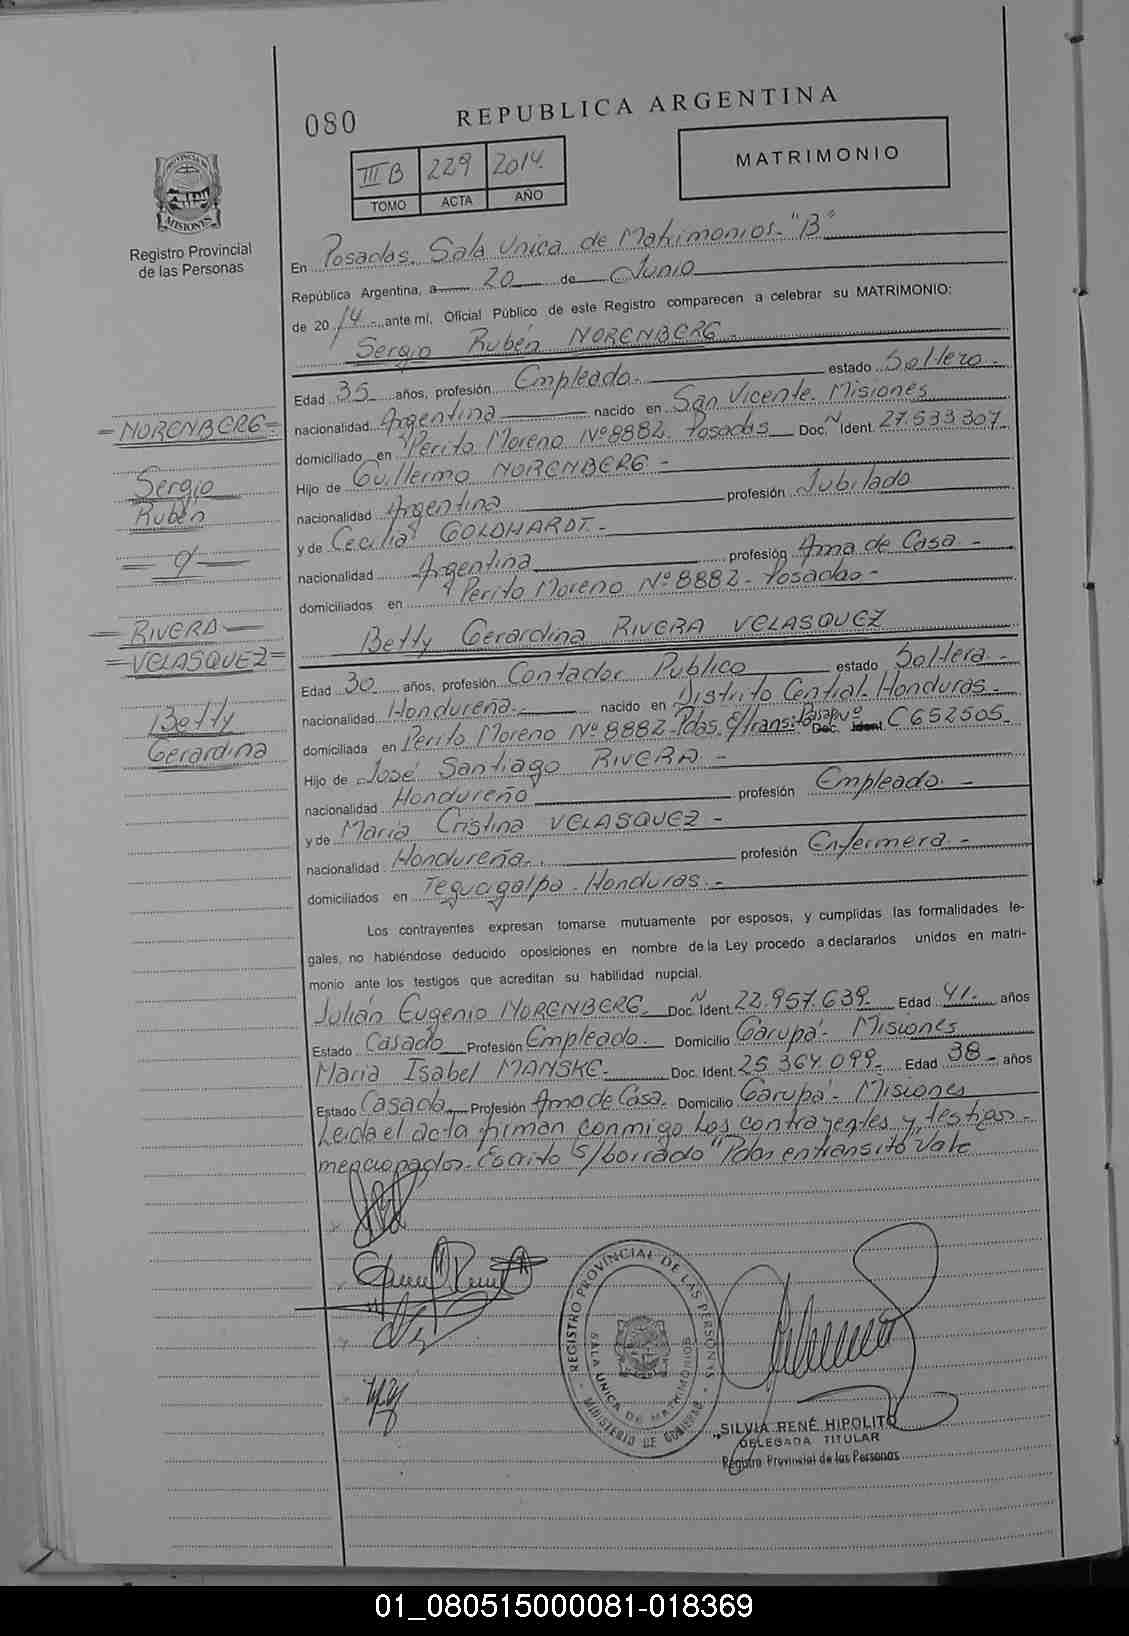 080
REPUBLICA ARGENTINA
III B 229 2014
TOMO ACTA AÑO
MATRIMONIO
PROVINCIA DE MISIONES
Registro Provincial
de las Personas
En Posadas. Sala Unica de Matrimonios "B"
República Argentina, a 20 de Junio
de 2014 ante mí, Oficial Público de este Registro comparecen a celebrar su MATRIMONIO:
Sergio Rubén NORENBERG -
Edad 35 años, profesión Empleado. estado Soltero -
nacionalidad Argentina nacido en San Vicente. Misiones
domiciliado en Perito Moreno Nº 8882. Posadas Doc. N Ident. 27.533.307
Hijo de Guillermo NORENBERG -
nacionalidad Argentina profesión Jubilado
y de Cecilia GOLDHARDT. -
nacionalidad Argentina profesión Ama de Casa -
domiciliados en Perito Moreno Nº 8882 - Posadas -
Betty Gerardina RIVERA VELASQUEZ
Edad 30 años, profesión Contador Publico estado Soltera -
nacionalidad Hondureña. - nacido en Distrito Central. Honduras -
domiciliada en Perito Moreno Nº 8882 - Pdas. E/trans: Doc. Ident. C652505 -
Hijo de José Santiago RIVERA. -
nacionalidad Hondureño profesión Empleado. -
y de Maria Cristina VELASQUEZ -
nacionalidad Hondureña. profesión Enfermera -
domiciliados en Tegucigalpa - Honduras. -
Los contrayentes expresan tomarse mutuamente por esposos, y cumplidas las formalidades le-
gales, no habiéndose deducido oposiciones en nombre de la Ley procedo a declararlos unidos en matri-
monio ante los testigos que acreditan su habilidad nupcial.
Julián Eugenio NORENBERG. Doc. N Ident. 22.957.639 - Edad 41 - años
Estado Casado Profesión Empleado. Domicilio Garupá - Misiones
Maria Isabel MANSKE - Doc. Ident. 25.364.099 - Edad 38 - años
Estado Casada Profesión Ama de Casa. Domicilio Garupá - Misiones
Leida el acta firman conmigo los contrayentes y testigos -
mencionados - Escrito s/borrado "Pdas en transito Vale
- NORENBERG -
Sergio
Rubén
- RIVERA -
- VELASQUEZ -
Betty
Gerardina
REGISTRO PROVINCIAL DE LAS PERSONAS
SALA UNICA DE MATRIMONIOS
MINISTERIO DE GOBIERNO
SILVIA RENÉ HIPOLITO
DELEGADA TITULAR
Registro Provincial de las Personas
01_080515000081-018369